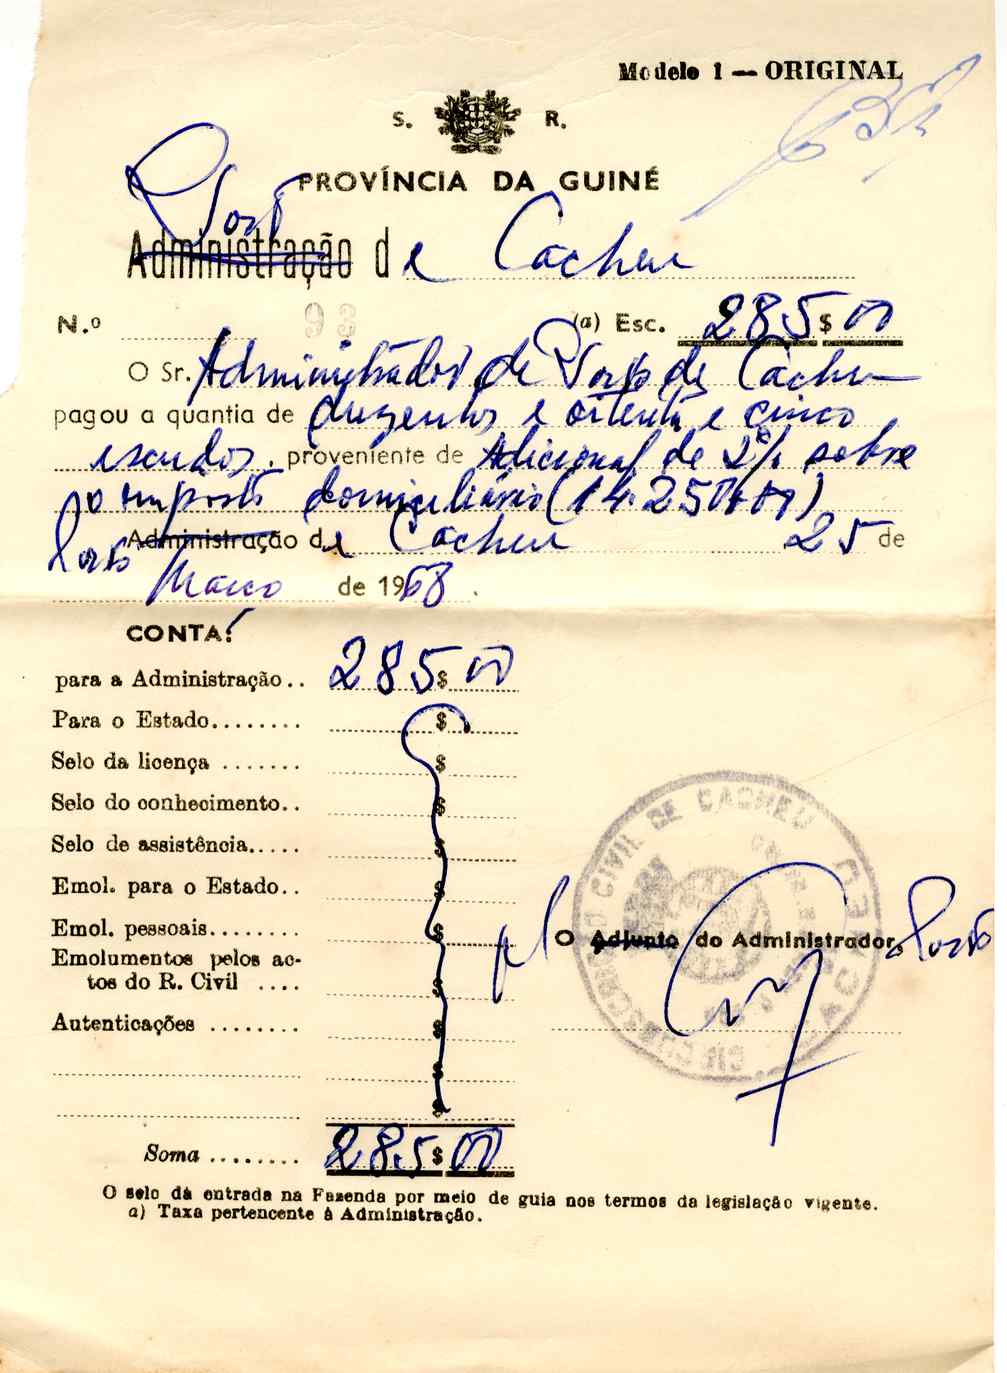 Modelo 1 — ORIGINAL
S. R.
PROVÍNCIA DA GUINÉ
Posto
Administração de Cacheu
N.º 93 (a) Esc. 285$00
O Sr. Administrador de Posto de Cacheu
pagou a quantia de duzentos e oitenta e cinco
escudos, proveniente de Adicional de 2% sobre
o imposto domiciliário (14.250$00)
Posto Administração de Cacheu 25 de
Março de 1968.
CONTA:
para a Administração.. 285$00
Para o Estado........ $
Selo da licença ....... $
Selo do conhecimento.. $
Selo de assistência..... $
Emol. para o Estado.. $
Emol. pessoais........ $
Emolumentos pelos ac-
tos do R. Civil .... $
Autenticações ........ $
$
$
Soma ........ 285$00
CIRCUNSCRIÇÃO CIVIL DE CACHEU
CACHEU
O Adjunto do Administrador, Posto
O selo dá entrada na Fazenda por meio de guia nos termos da legislação vigente.
a) Taxa pertencente à Administração.